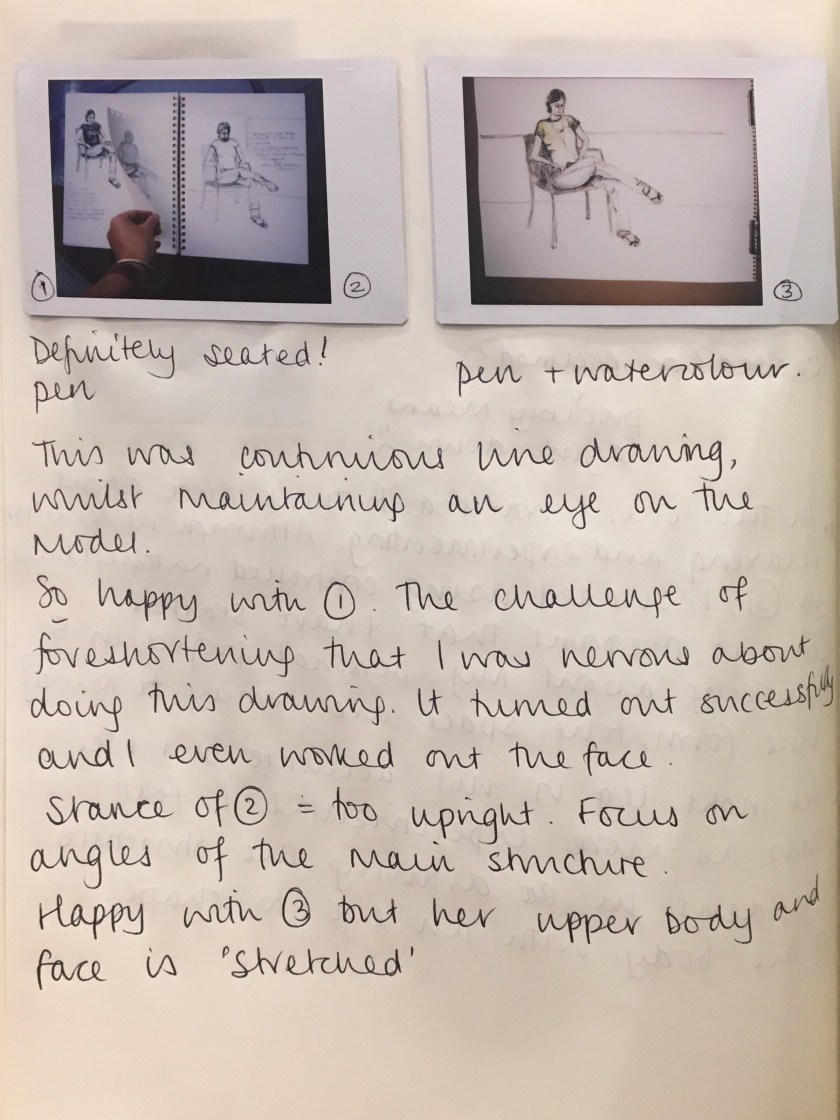 ① ②
③
Definitely seated!
pen
pen + watercolour.
This was continuious line drawing,
whilst maintaining an eye on the
model.
So happy with ①. The challenge of
foreshortening that I was nervous about
doing this drawing. It turned out successfully
and I even worked out the face.
Stance of ② = too upright. Focus on
angles of the main structure.
Happy with ③ but her upper body and
face is 'stretched'